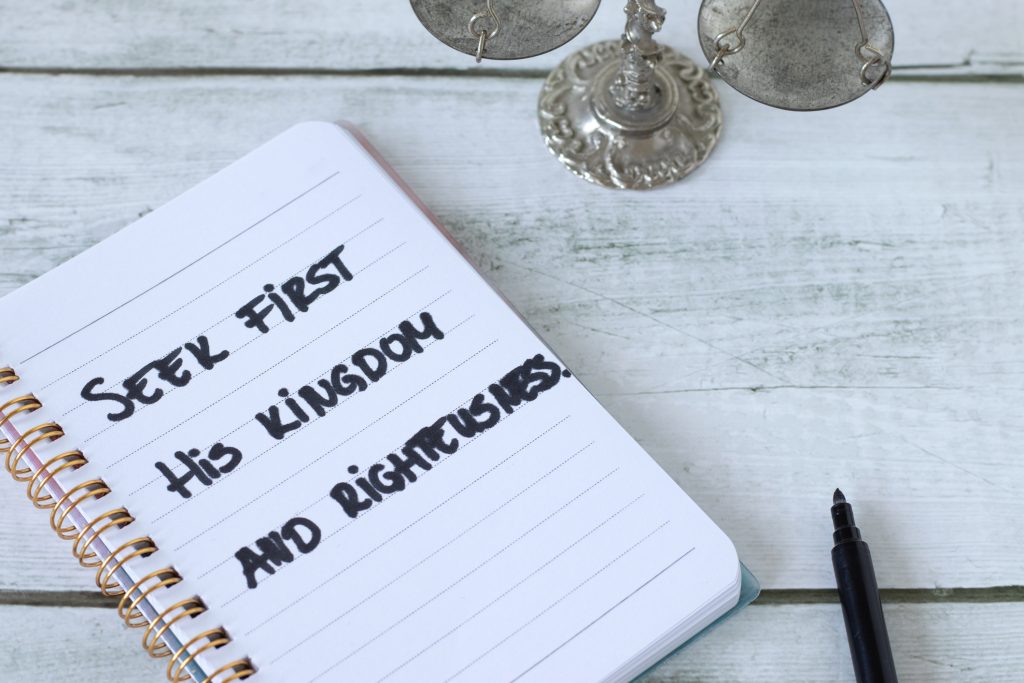 SEEK FiRST
His KiNGDOM
AND RiGHTEUSNESS.